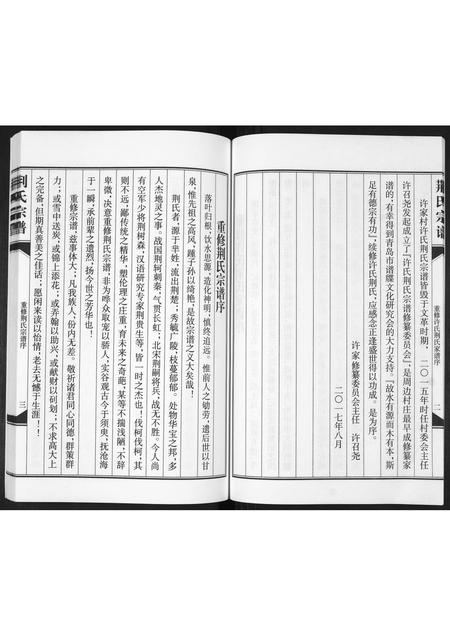 荆氏宗谱
重修许氏荆氏家谱序
二
许家村许氏荆氏宗谱皆毁于文革时期，二〇一五年时任村委会主任
许召尧发起成立了『许氏荆氏宗谱修纂委员会』，是周边村庄最早成修纂家
谱的，有幸得到青岛市谱牒文化研究会的大力支持。『故水有源而木有本，斯
足有德宗有功』续修许氏荆氏，应感念正逢盛世得以功成。是为序。
许家修纂委员会主任　许召尧
二〇一七年八月
重修荆氏宗谱序
落叶归根，饮水思源，造化神明，慎终追远。惟前人之劬劳，遗后世以甘
泉，惟先祖之高风，踵子孙以绮艳，是故宗谱之义大矣哉！
荆氏者，源于芈姓，流出荆楚；秀毓广陵，枝蔓郁郁。处物华宝之邦，多
人杰地灵之事。战国荆轲刺秦，气贯长虹；北宋荆嗣将兵，战无不胜。今人尚
有空军少将荆树森，汉语研究专家荆贵生等，皆一时之杰也！伐柯伐柯，其
则不远；鄙传统之精华，塑伦理之庄重，育未来之奇葩，某等不揣浅陋，不辞
卑微，决意重修荆氏宗谱，非为哗众取宠以骄人，实谷观古今于须臾，抚沧海
于一瞬，承前辈之遗烈，扬今世之芳华也！
重修宗谱，兹事体大；凡我族人，份内无差。敬祈诸君同心同德，群策群
力；或雪中送炭，或锦上添花；或弄翰以助兴，或献财以刿划；不求高大上
之完备，但期真善美之佳话；愿闲来读以怡情，老去无憾于生涯！！
荆氏宗谱
重修荆氏宗谱序
三